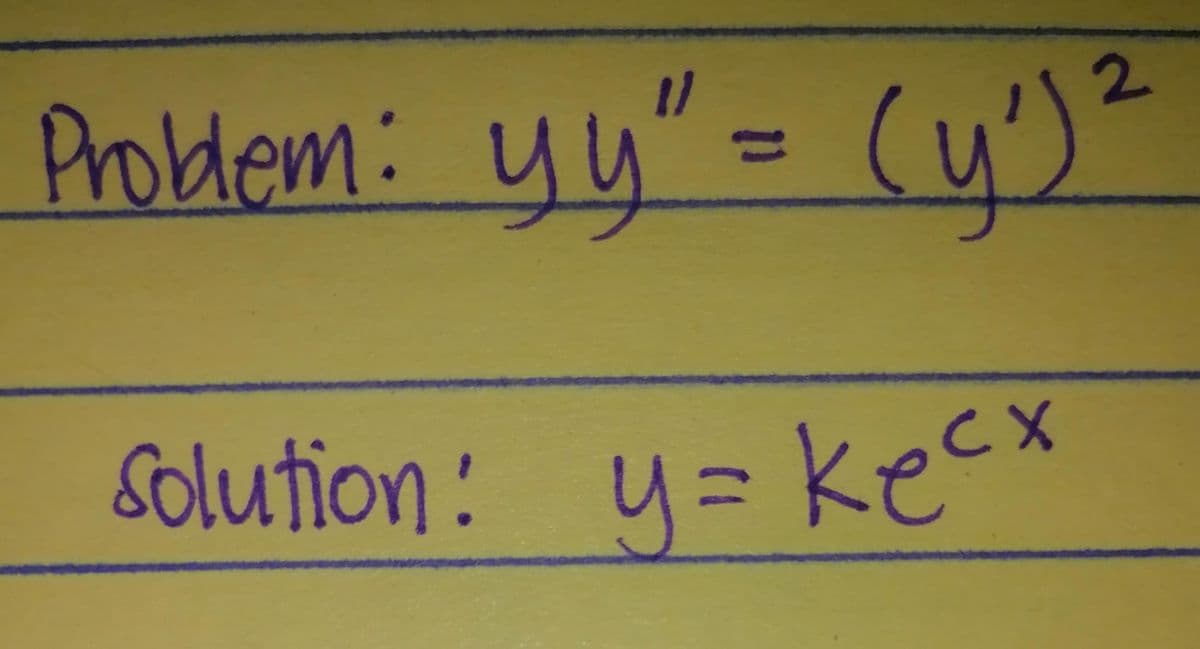 Problem: yy" = (y')²
Solution: y = ke^{cx}